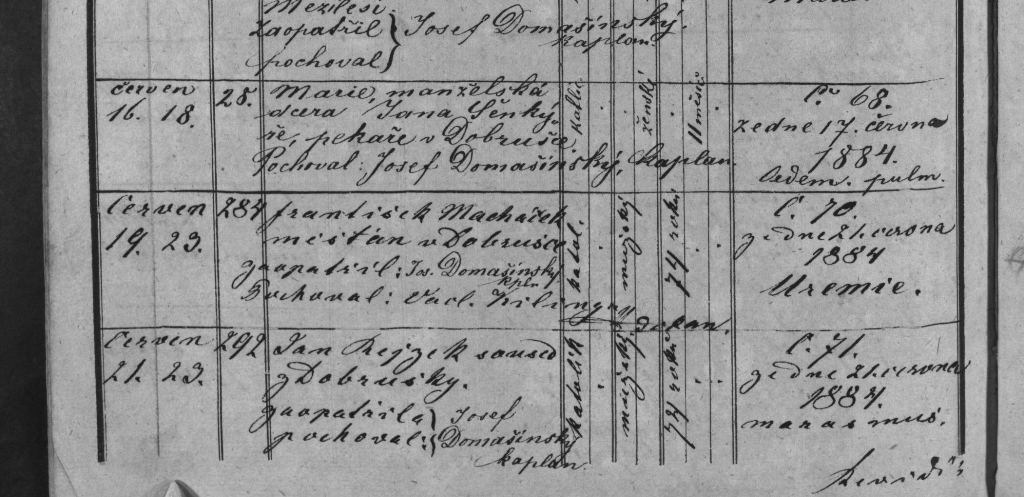 Mezilesí
zaopatřil } Josef Domašínský,
pochoval kaplan.
červen
16. 18.
28.
Marie, manželská
dcera Jana Šenký-
ře, pekaře v Dobrušce.
Pochoval: Josef Domašínský, kaplan.
kathl.
ženský
11 měsíců
Č. 68.
ze dne 17. června
1884.
Oedem. pulm.
Červen
19. 23.
284
František Macháček
měštán v Dobrušce
zaopatřil: Jos. Domašínský
kpln
Pochoval: Vacl. Kilingr,
děkan.
katol.
mužský
74 roků
Č. 70.
z dne 21. června
1884
Uremie.
Červen
21. 23.
292
Jan Rejzek soused
z Dobrušky.
zaopatřil a } Josef
pochoval: Domašínský
kaplan
katolík
mužský
72 roků
Č. 71.
ze dne 21. června
1884.
marasmus.